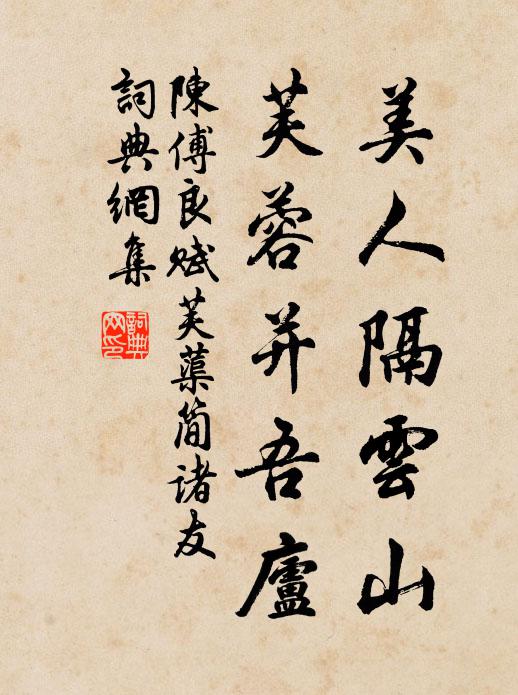 美人隔雲山
芙蓉并吾廬
陳傅良賦芙蕖简诸友
詞典網集
詞典网印